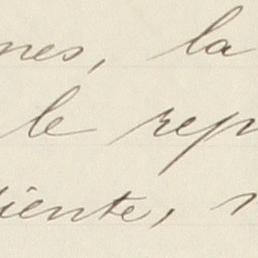 nes, la
le rep
diente,